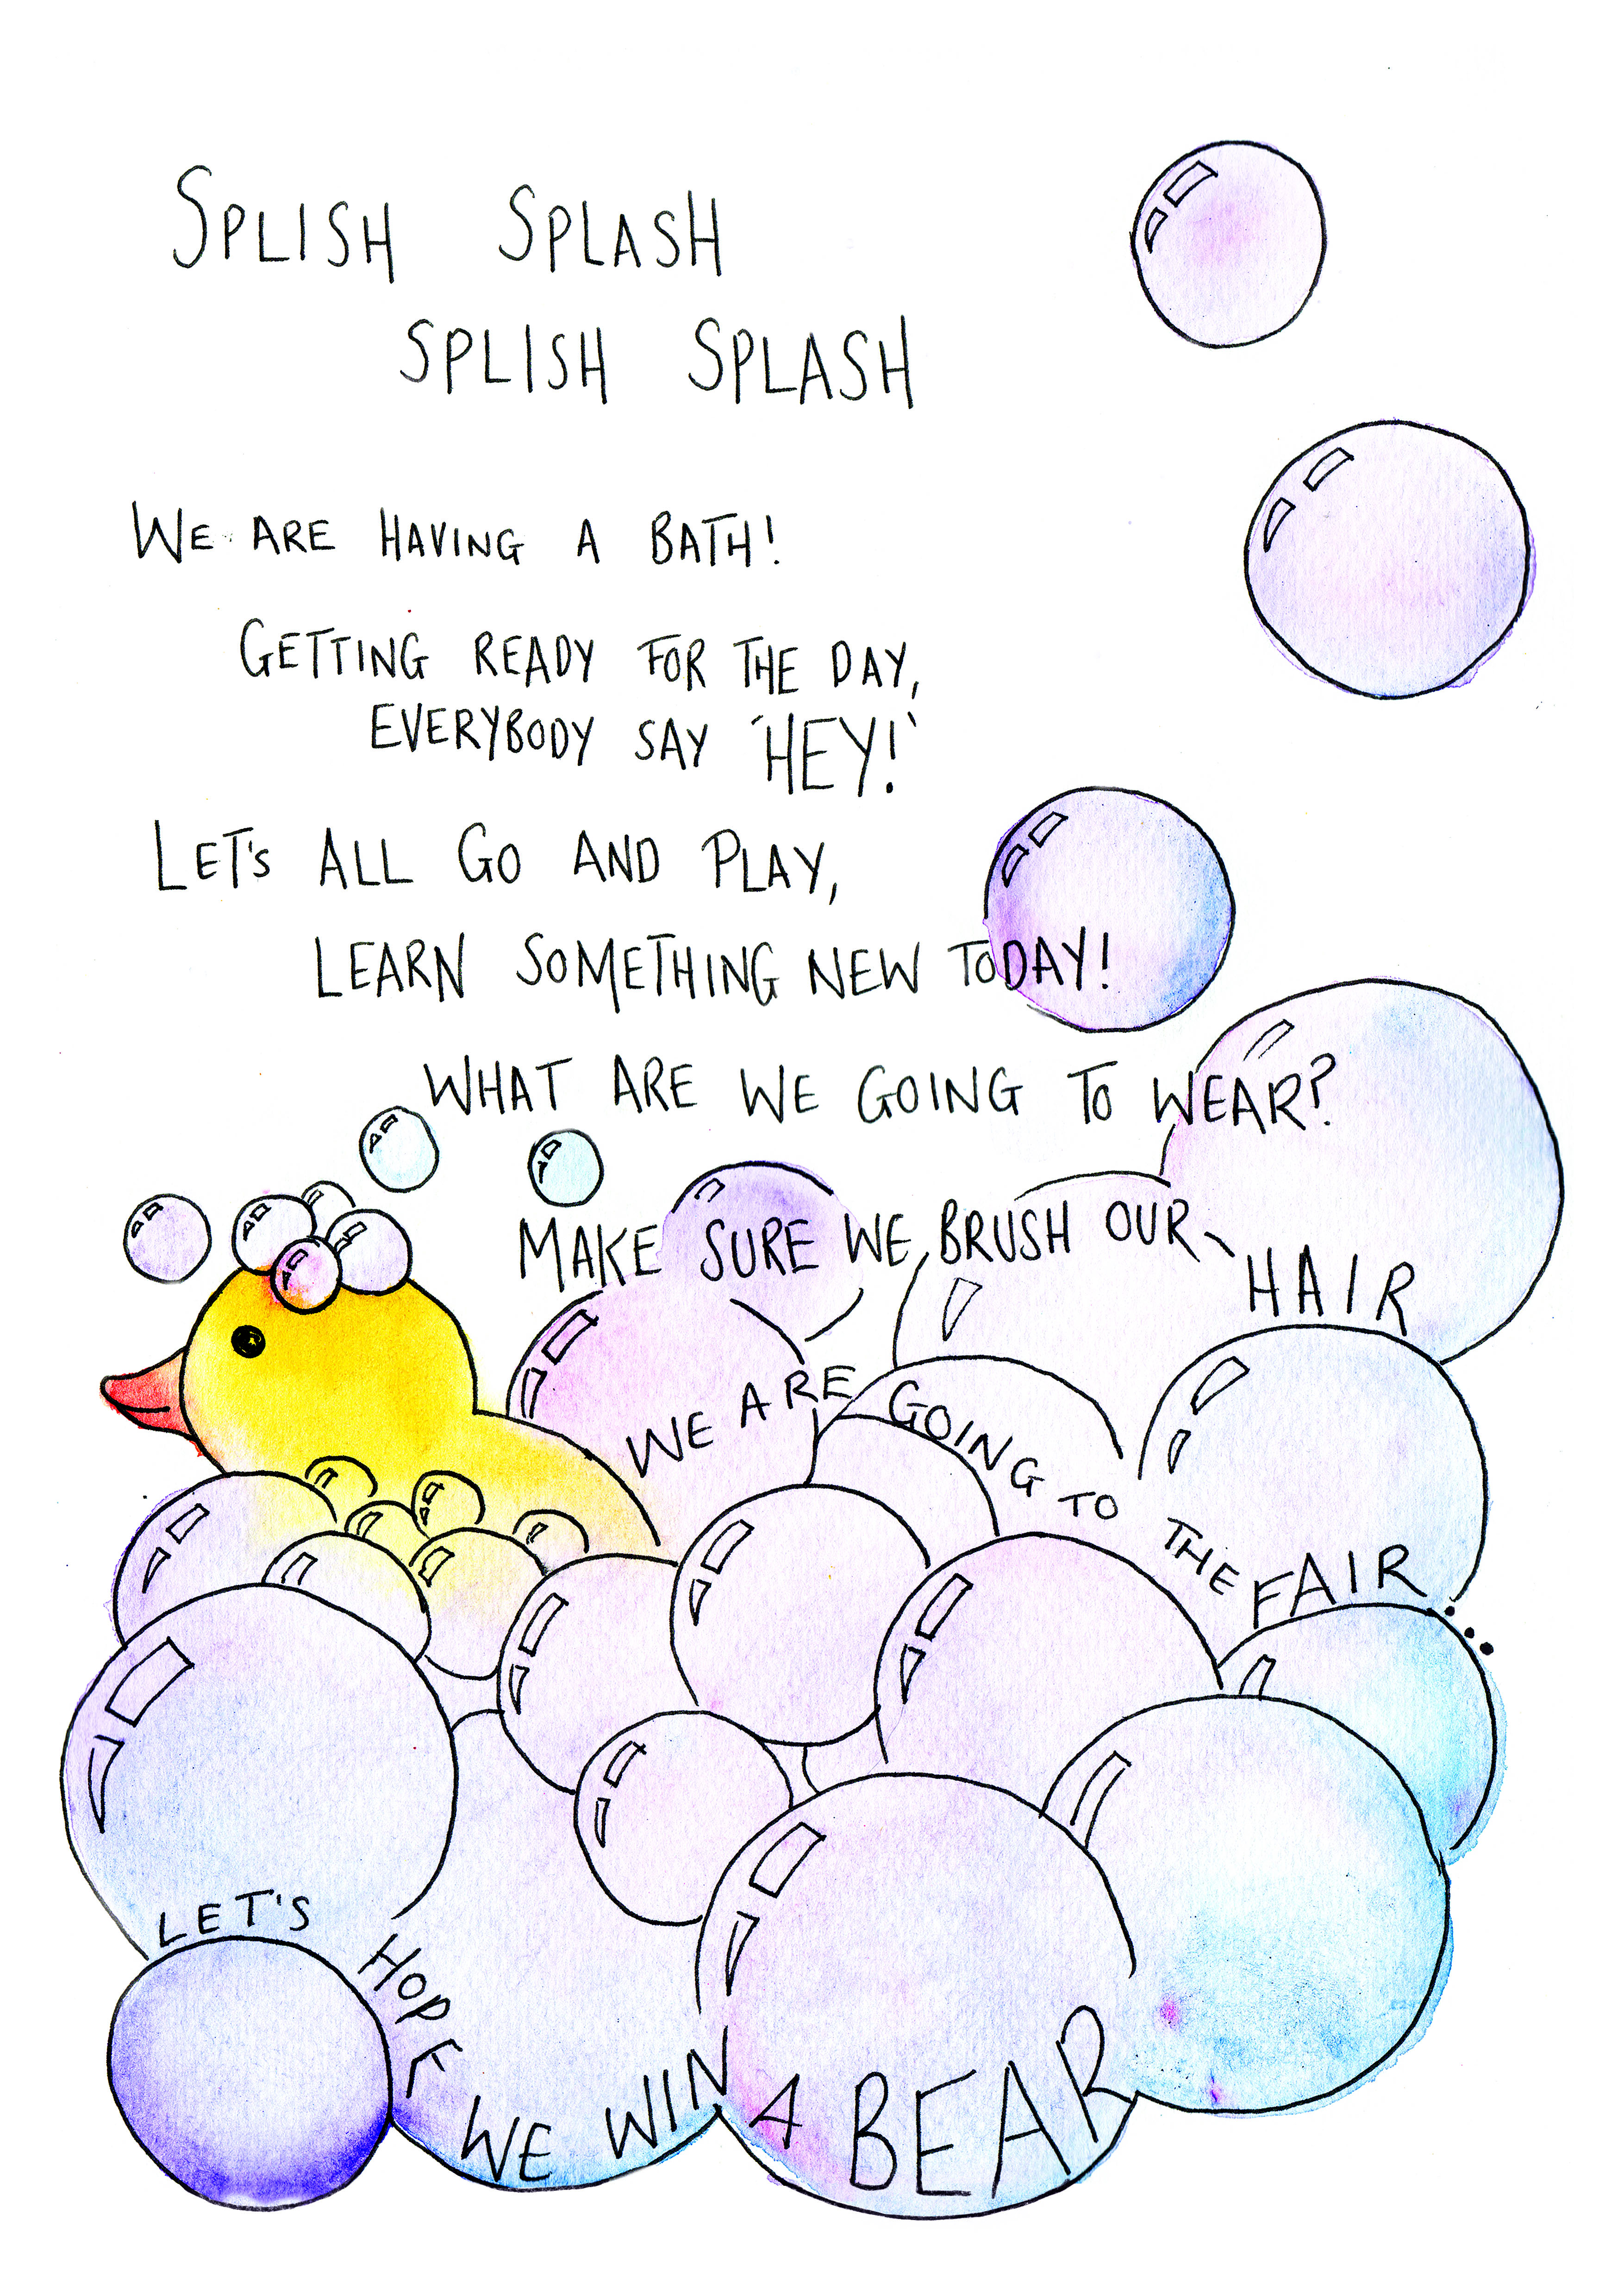 SPLISH SPLASH
SPLISH SPLASH
WE ARE HAVING A BATH!
GETTING READY FOR THE DAY,
EVERYBODY SAY 'HEY!'
LET'S ALL GO AND PLAY,
LEARN SOMETHING NEW TODAY!
WHAT ARE WE GOING TO WEAR?
MAKE SURE WE BRUSH OUR HAIR
WE ARE GOING TO THE FAIR...
LET'S HOPE WE WIN A BEAR